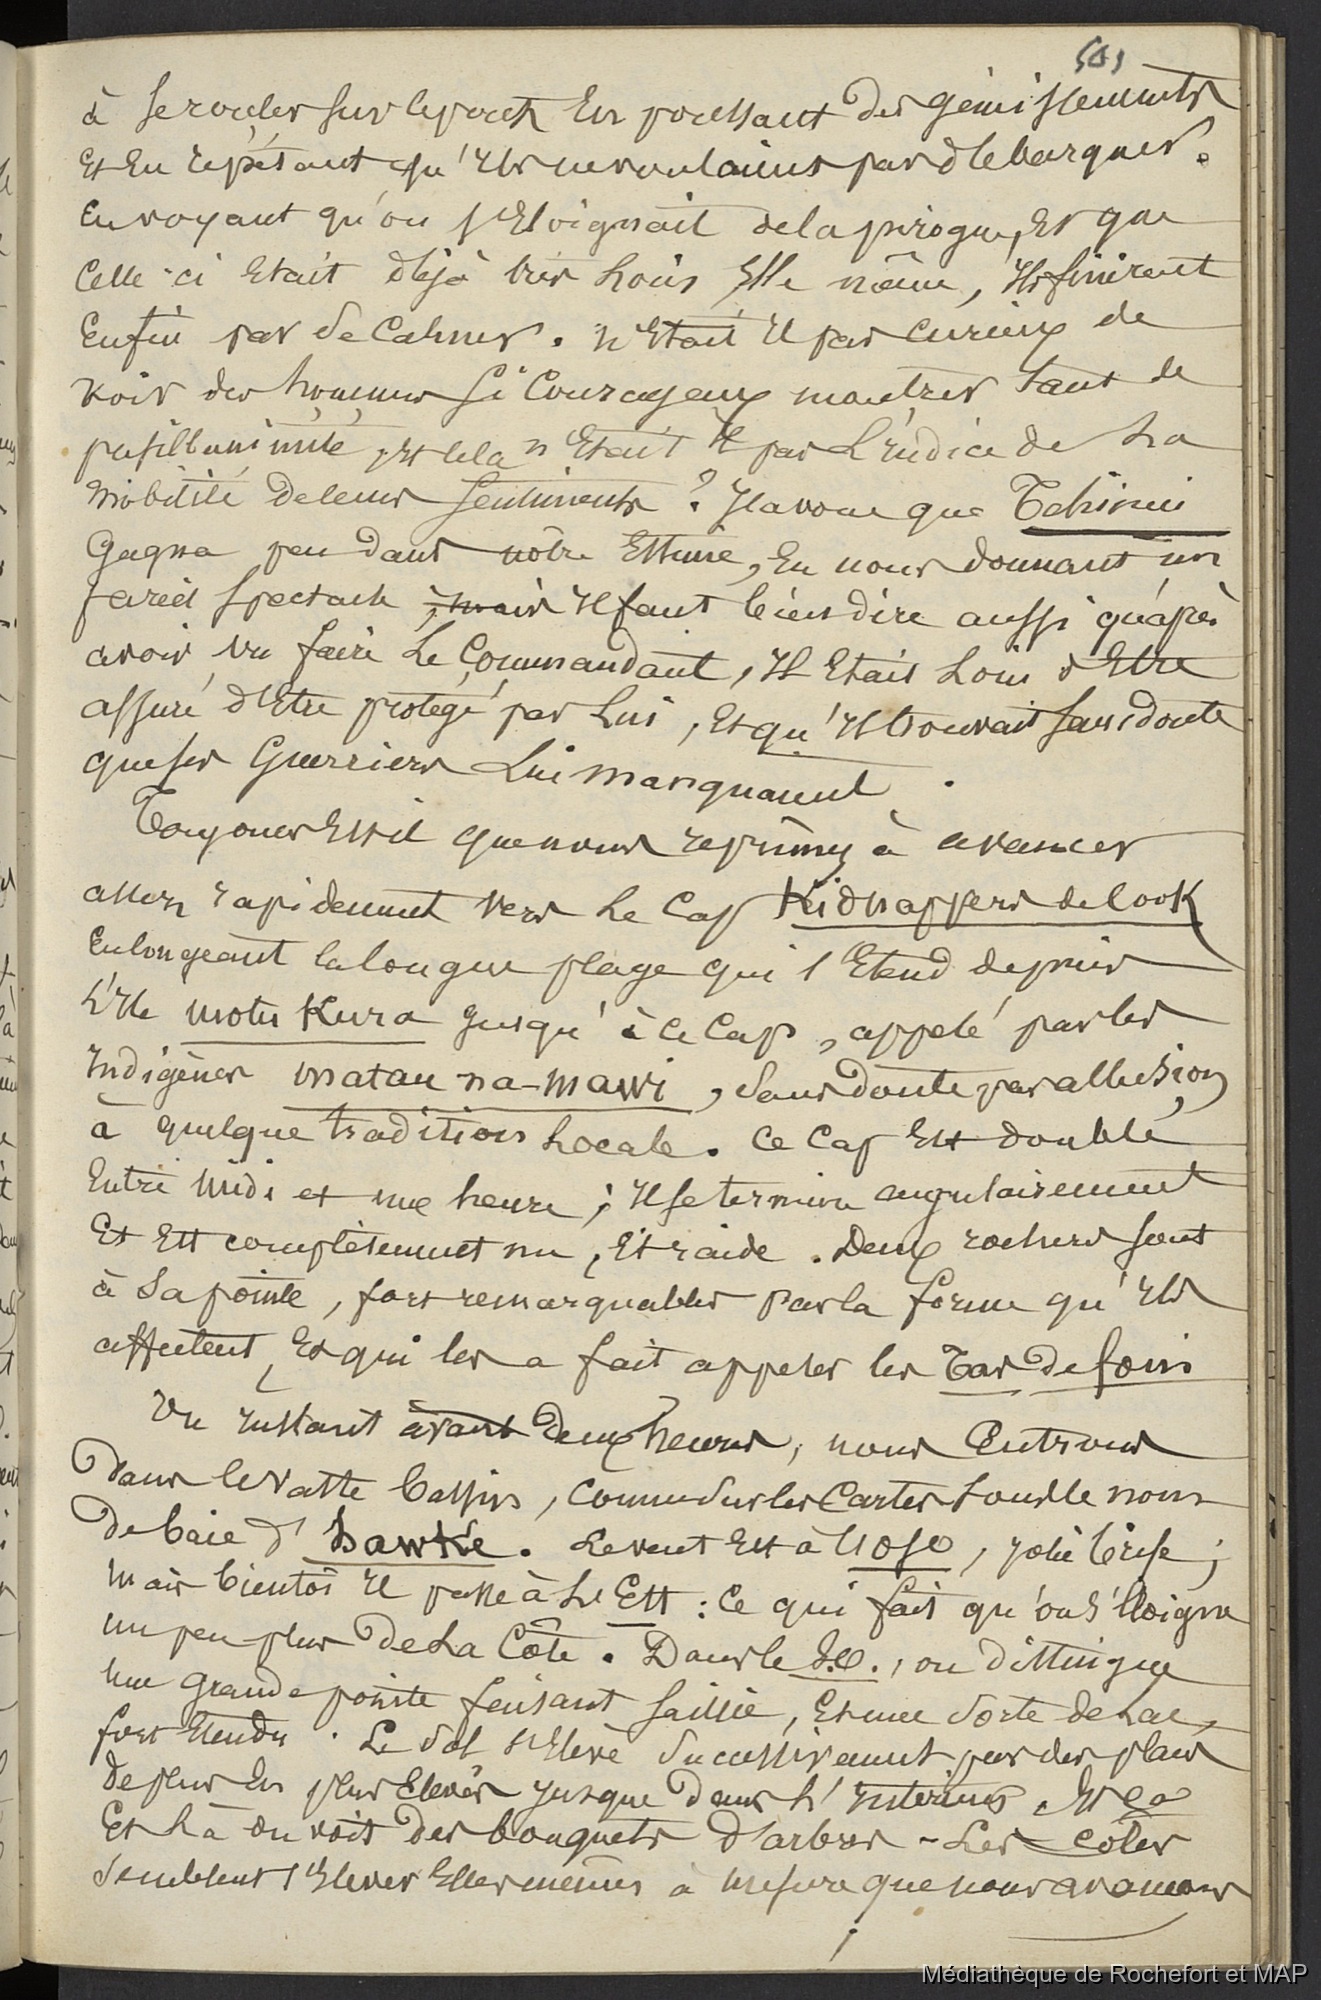 501
à se rouler sur le pont En poussant des gémissements
Et En répétant qu'Ils ne voulaient pas débarquer.
En voyant qu'on s'Eloignait de la pirogue, Et que
Celle-ci Etait déjà très Loin Elle même, Ils finirent
Enfin par se Calmer. N'Etait Il pas curieux de
voir des hommes si Courageux montrer tant de
pusillanimité, Et cela n'Etait Il pas L'Indice de La
mobilité de leurs Sentiments ? J'avoue que Tehinui
Gagna peu dans nôtre Estime, En nous donnant un
pareil Spectacle ; mais Il faut bien dire aussi qu'après
avoir vu faire Le Commandant, Il Etait Loin d'Etre
assuré d'Etre protégé par Lui, Et qu'Il trouvait sans doute
que ses Guerriers Lui manquaient.
Toujours Est il que nous reprîmes à avancer
assez rapidement vers Le Cap Kidnappers de Cook
En longeant la longue plage qui s'Etend depuis
L'Ile motu Kura jusqu'à ce Cap, appelé par les
Indigènes matau na-mawi, sans doute par allusion
à quelque tradition Locale. Ce Cap Est doublé
Entre midi et une heure ; Il se termine angulairement
Et Est complètement nu, Et raide. Deux rochers sont
à sa pointe, fort remarquables par la forme qu'Ils
affectent, Et qui les a fait appeler les Tas de foin
Un Instant avant Deux heures, nous Entrons
Dans le Vaste bassin, connu sur les Cartes sous le nom
De baie d'Hawke. Le vent Est à l'OSO, jolie brise ;
mais bientôt Il passe à L'Est : ce qui fait qu'on s'Eloigne
un peu plus De La Côte. Dans le S.O., on distingue
une grande pointe faisant saillie, Et une sorte de Lac,
fort Etendu. Le Sol s'Elève successivement par des plans
De plus En plus Elevés jusque dans L'Intérieur. Et ça
Et Là on voit des bouquets d'arbres - Les côtes
semblent s'Elever Elles mêmes à mesure que nous avançons